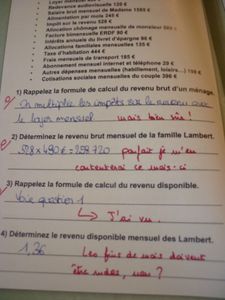 Redevance audiovisuelle 120 €
Salaire brut mensuel de Madame 1580 €
Alimentation par mois 245 €
Impôt sur le revenu 528 €
Allocation chômage mensuelle de monsieur
Facture bimensuelle ERDF 90 €
Intérêts annuels du livret d'épargne 96 €
Allocations familiales mensuelles 135 €
Taxe d'habitation
Frais mensuels de transport 185 €
Abonnement mensuel Internet et téléphone 29 €
Autres dépenses mensuelles (habillement, loisirs...)
Cotisations sociales mensuelles du couple 396 €
1) Rappelez la formule de calcul du revenu brut d'un ménage.
On multiplie les impôts sur le revenu avec
le loyer mensuel mais bien sûr !
2) Déterminez le revenu brut mensuel de la famille Lambert.
528 x 490 € = 258 720 parfait je m'en
contenterai ce mois-ci
3) Rappelez la formule de calcul du revenu disponible.
Voir question 1
J'ai vu.
4) Déterminez le revenu disponible mensuel des Lambert.
1,36 Les fins de mois doivent
être rudes, non ?